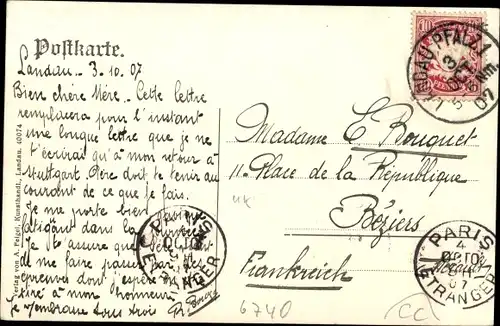 Postkarte.
Landau _ 3.10.07
Bien chère Mère. Cette lettre
remplacera pour l'instant
une longue lettre que je ne
t'écrirai qu'à mon retour à
Stuttgart. Père doit te tenir au
courant de ce que je fais.
Je me porte bien
fatigant dans la
Je te assure que
me faire passer par des
épreuves dont j'espère
à mon honneur.
Je t'embrasse tous trois
Madame E. Bouquet
11 Place de la Republique
Béziers
Frankreich
6740
CC
10
LANDAU PFALZ 1
3
OCT.
5-6 Nm.
07
PARIS
4
OCT
07
ETRANGER
PARIS
ETRANGER
Verlag von A. Feigel, Kunsthandl., Landau. 40074